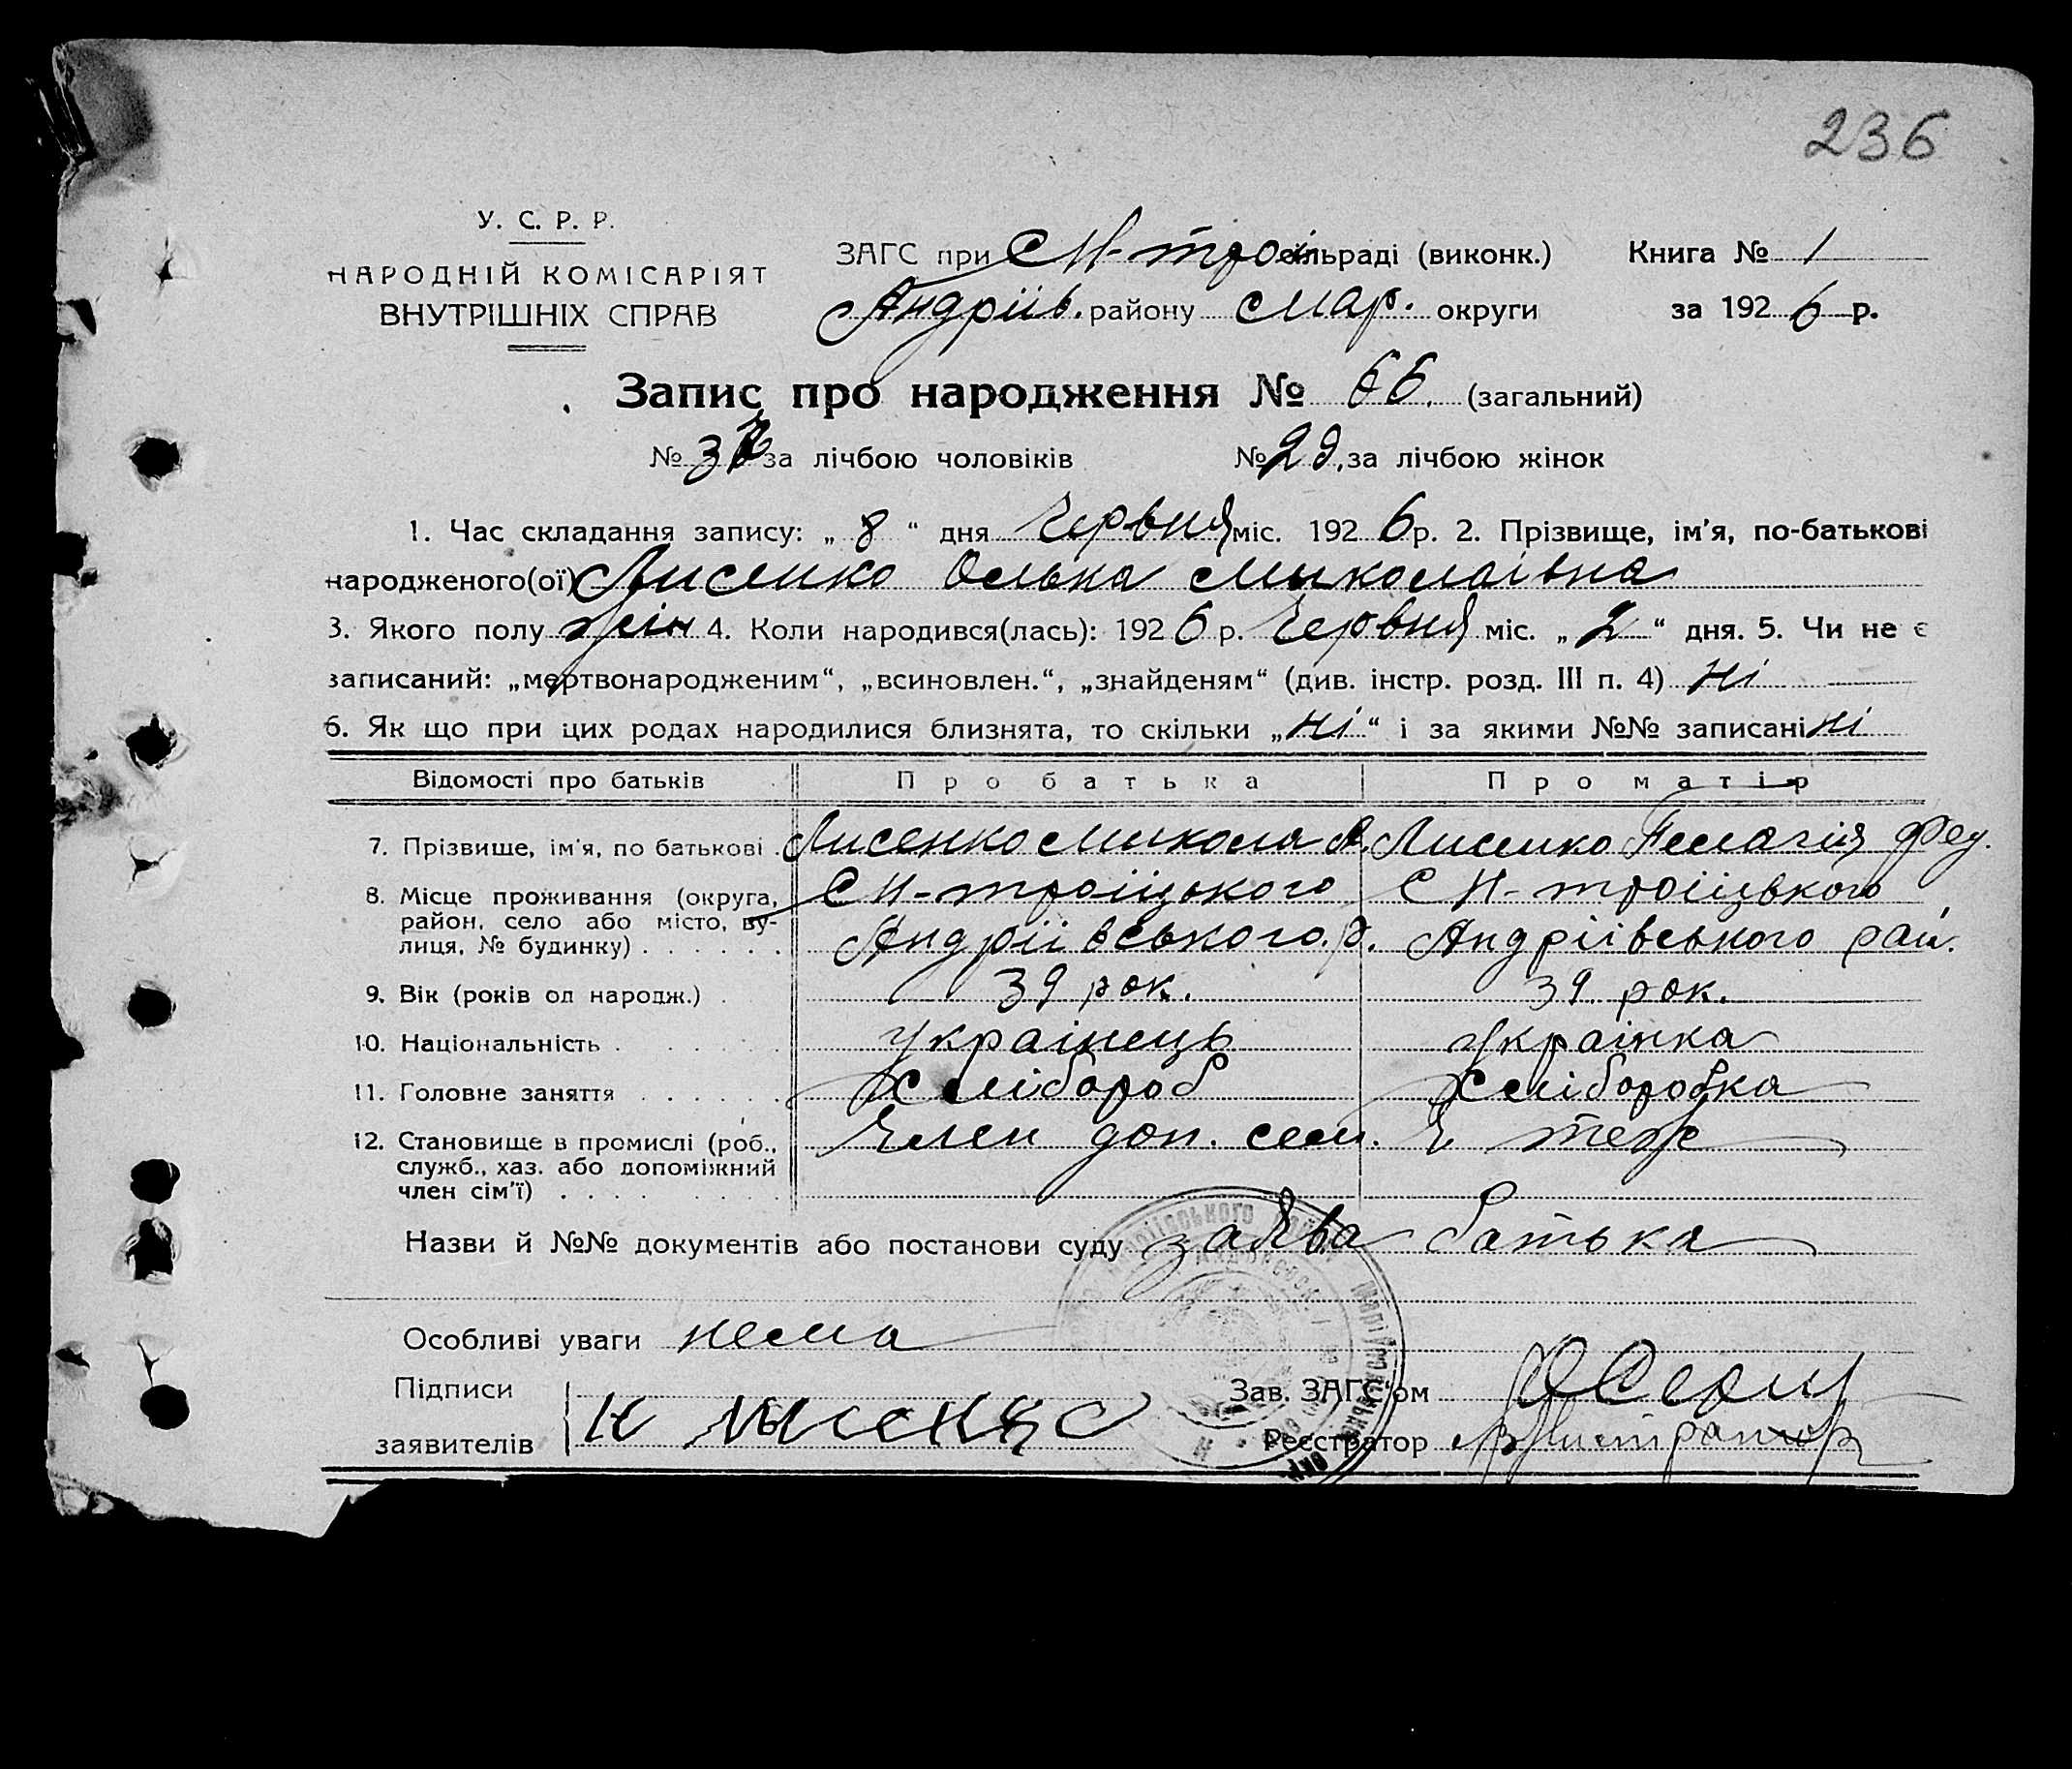 236
У. С. Р. Р.
НАРОДНІЙ КОМІСАРІЯТ
ВНУТРІШНІХ СПРАВ
ЗАГС при Н-трої сільраді (виконк.) Книга № 1
Андріїв. району Мар. округи за 1926 р.
Запис про народження № 66. (загальний)
№ 3 за лічбою чоловіків № 29. за лічбою жінок
1. Час складання запису: „ 8 “ дня Червня міс. 1926 р. 2. Прізвище, ім'я, по-батькові
народженого(ої) Лисенко Ольна Миколаівна
3. Якого полу жін 4. Коли народився(лась): 1926 р. Червня міс. „ 2 “ дня. 5. Чи не є
записаний: „мертвонародженим“, „всиновлен.“, „знайденям“ (див. інстр. розд. III п. 4) Ні
6. Як що при цих родах народилися близнята, то скільки „ Ні “ і за якими №№ записані ні
Відомості про батьків Про батька Про матір
7. Прізвище, ім'я, по батькові . Лисенко Микола А. Лисенко Пелагія Фед.
8. Місце проживання (округа, район, село або місто, вулиця, № будинку) . . . . . . С Н-троіцького Андріівського р. С Н-троіцького Андріівського рай.
9. Вік (років од народж.) . 39 рок. 39 рок.
10. Національність . . . . . українець українка
11. Головне заняття . . . . . . хлібороб хліборобка
12. Становище в промислі (роб., служб., хаз. або допоміжний член сім'ї) . . . . Член доп. сем. Ч теж
Назви й №№ документів або постанови суду заява батька
Особливі уваги нема
Підписи
заявителів Н Лисенко
Зав. ЗАГС'ом
Реєстратор